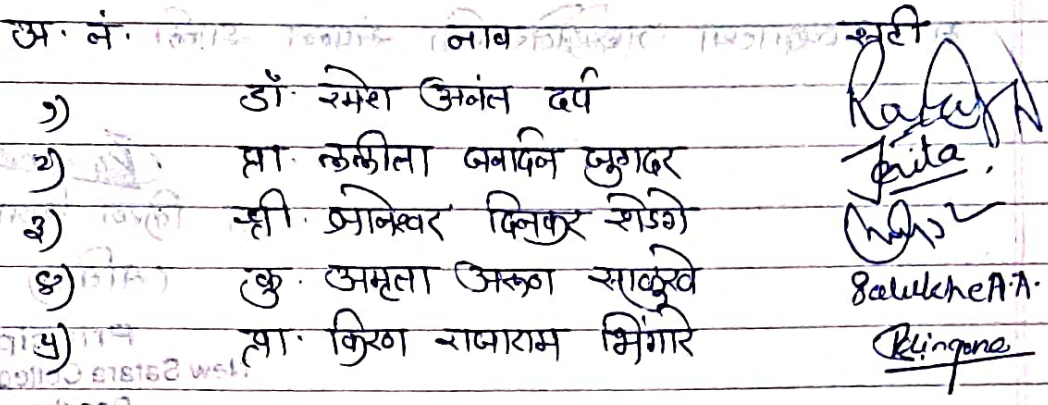 अ. नं. नाव सही
१) डॉ. रमेश अनंत दर्प
२) प्रा. ललीता जनार्दन जुगदर
३) श्री. ज्ञानेश्वर दिनकर शेडगे
४) कु. अमृता अरूण साळुंखे Salukhe A.A.
५) प्रा. किरण राजाराम भिंगारे